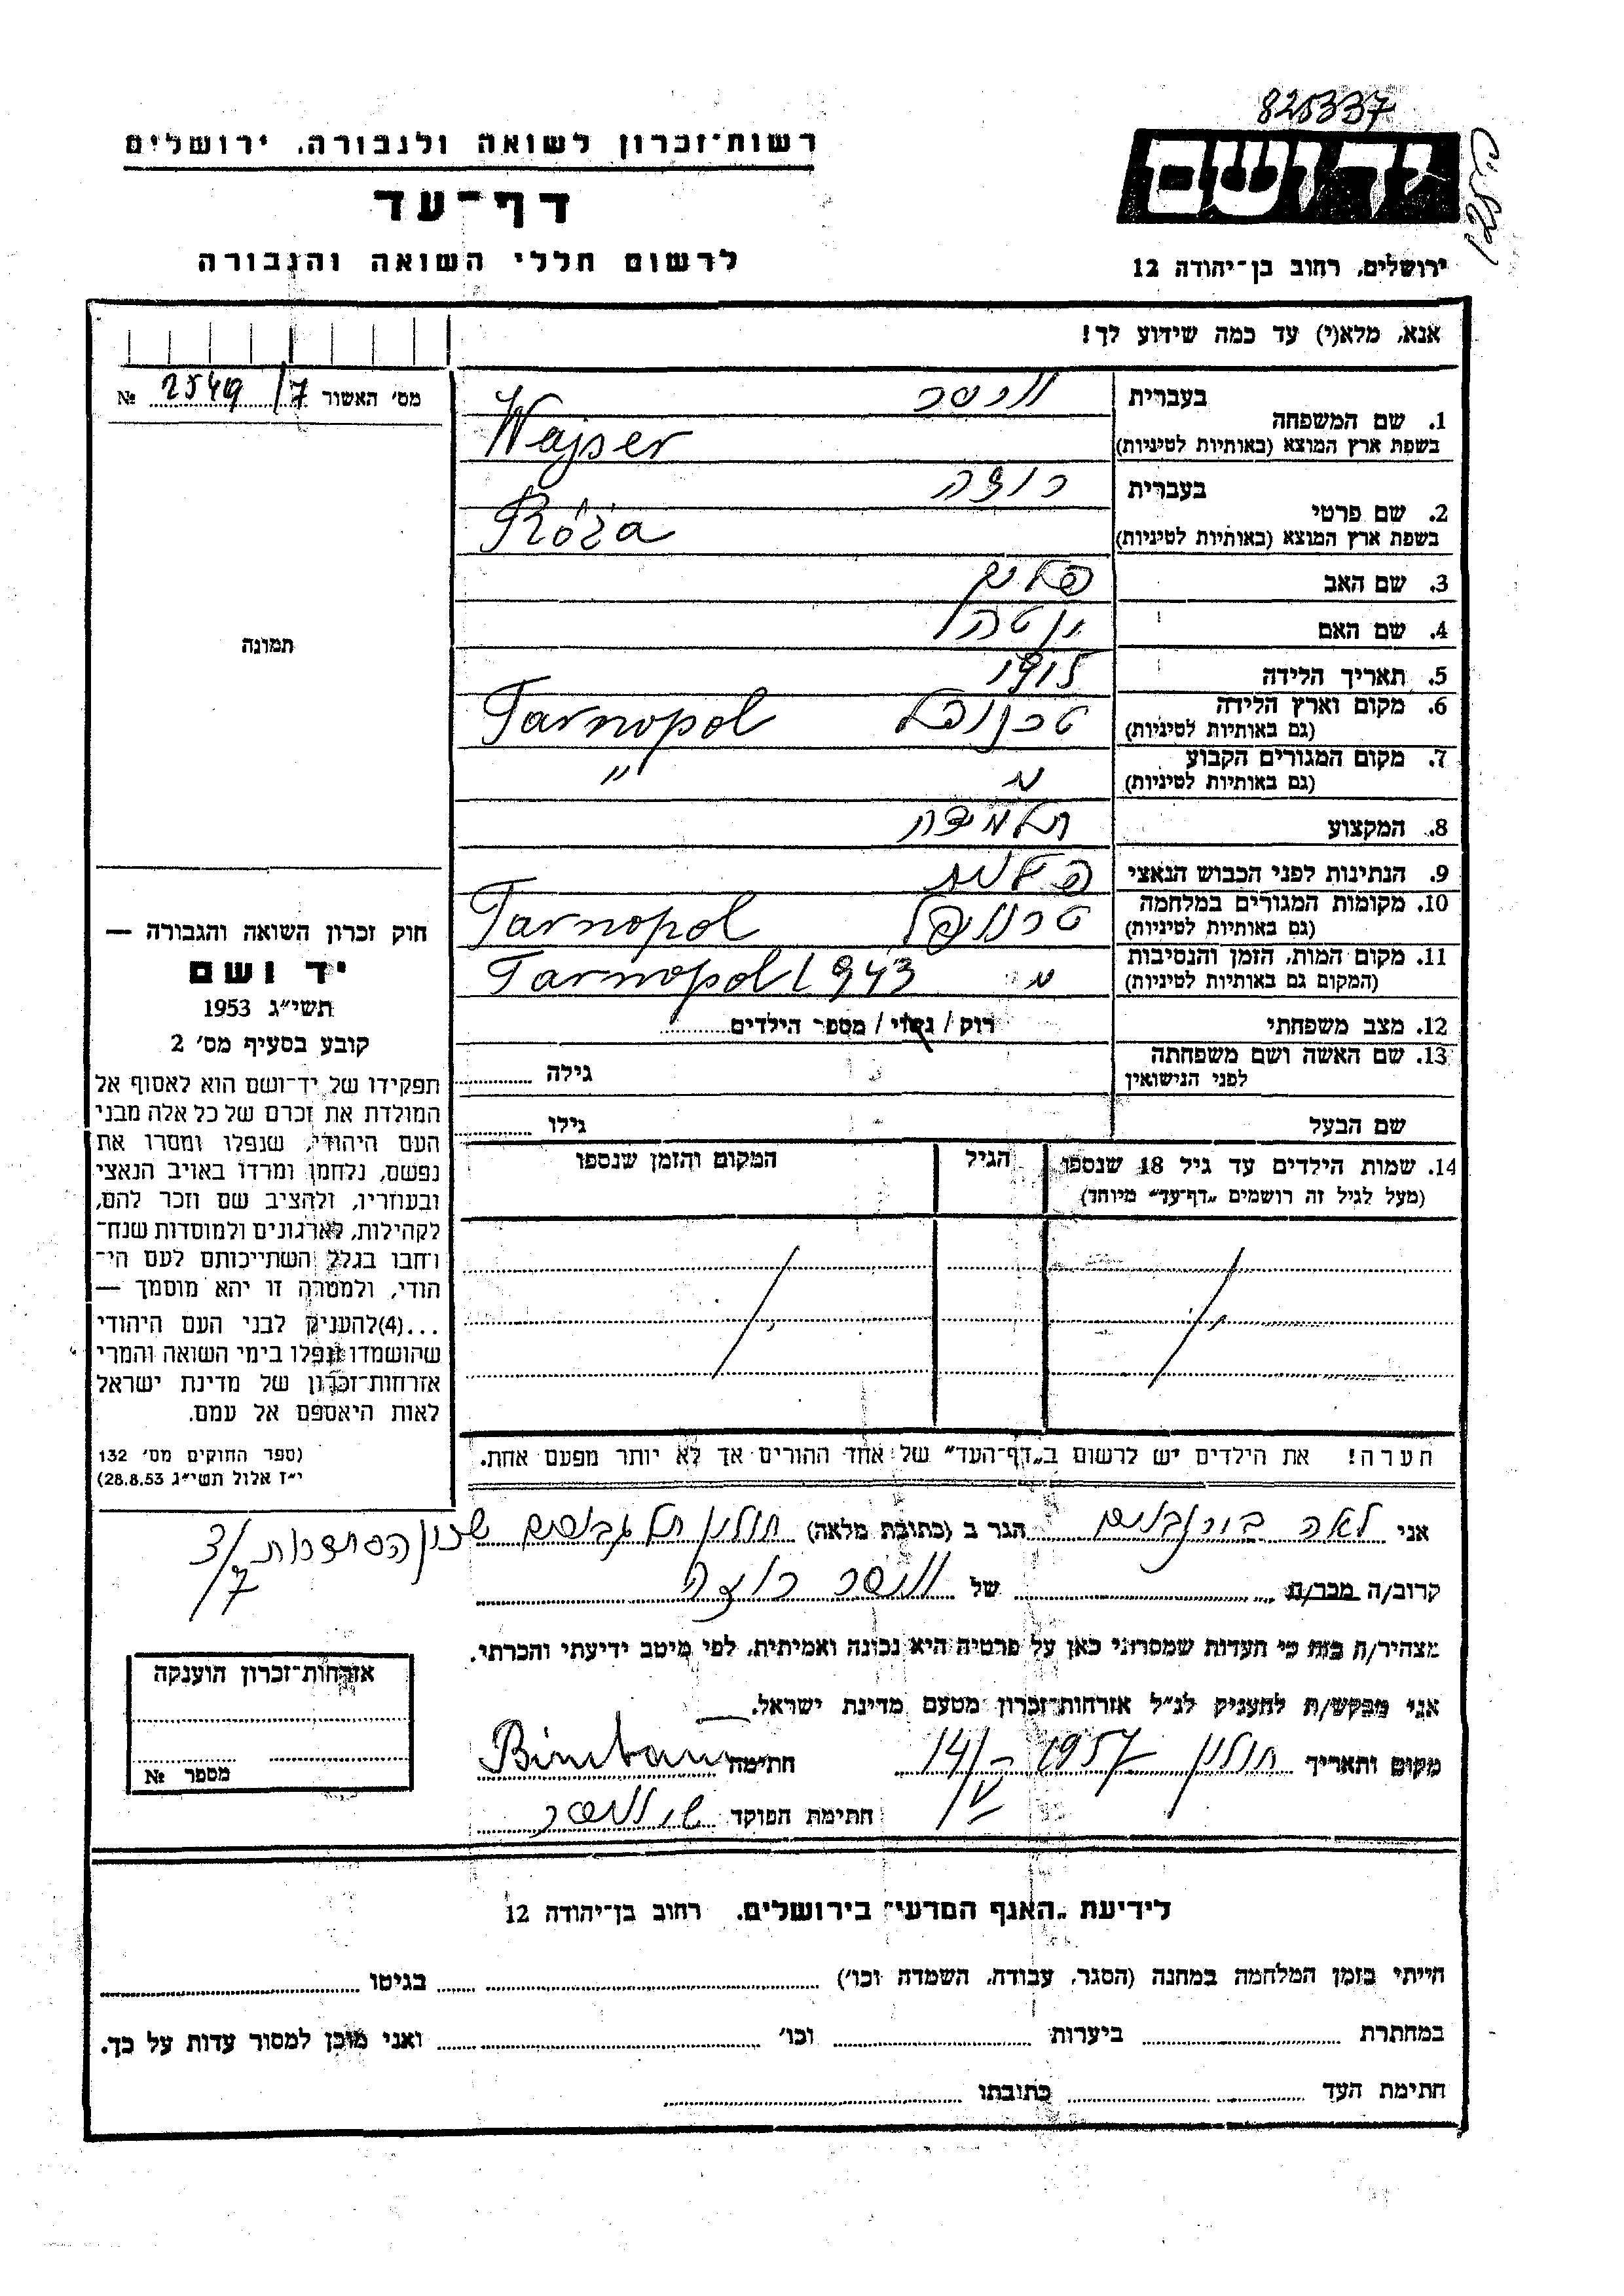 825337
רשות־זכרון לשואה ולגבורה, ירושלים
יד ושם
דף־עד
לרשום חללי השואה והגבורה
ירושלים, רחוב בן־יהודה 12
אנא, מלא(י) עד כמה שידוע לך!
מס' האשור 7/ 2549 №
בעברית וויסר
1. שם המשפחה
בשפת ארץ המוצא (באותיות לטיניות) Wajser
בעברית רוזה
2. שם פרטי
בשפת ארץ המוצא (באותיות לטיניות) Róża
3. שם האב
4. שם האם
תמונה
5. תאריך הלידה 1915
6. מקום וארץ הלידה טרנופול Tarnopol
(גם באותיות לטיניות)
7. מקום המגורים הקבוע "
(גם באותיות לטיניות)
8. המקצוע תלמידה
9. הנתינות לפני הכבוש הנאצי פולנית
10. מקומות המגורים במלחמה טרנופול Tarnopol
(גם באותיות לטיניות)
11. מקום המות, הזמן והנסיבות Tarnopol 1943
(המקום גם באותיות לטיניות)
12. מצב משפחתי רוק / נשוי / מספר הילדים
13. שם האשה ושם משפחתה
לפני הנישואין גילה
שם הבעל גילו
14. שמות הילדים עד גיל 18 שנספו הגיל המקום והזמן שנספו
(מעל לגיל זה רושמים „דף־עד" מיוחד)
חוק זכרון השואה והגבורה —
יד ושם
תשי"ג 1953
קובע בסעיף מס' 2
תפקידו של יד־ושם הוא לאסוף אל
המולדת את זכרם של כל אלה מבני
העם היהודי, שנפלו ומסרו את
נפשם, נלחמו ומרדו באויב הנאצי
ובעוזריו, ולהציב שם וזכר להם,
לקהילות, לארגונים ולמוסדות שנח־
רחבו בגלל השתייכותם לעם הי־
הודי, ולמטרה זו יהא מוסמך —
...(4)להעניק לבני העם היהודי
שהושמדו ונפלו בימי השואה והמרי
אזרחות־זכרון של מדינת ישראל
לאות היאספם אל עמם.
(ספר החוקים מס' 132
י"ז אלול תשי"ג 28.8.53)
הערה! את הילדים יש לרשום ב„דף־העד" של אחד ההורים אך לא יותר מפעם אחת.
אני לאה בירנבוים הגר ב (כתובת מלאה) חולון תל גבורים שכון הסתדרות 3/
7/
קרוב/ה מכר/ת של וויסר רוזה
מצהיר/ה בזה כי העדות שמסרתי כאן על פרטיה היא נכונה ואמיתית, לפי מיטב ידיעתי והכרתי.
אני מבקש/ת להעניק לנ"ל אזרחות־זכרון מטעם מדינת ישראל.
מקום ותאריך חולון 14/V 1957 חתימה Birnbaum
חתימת הפוקד
אזרחות־זכרון הוענקה
מספר №
לידיעת „האגף המדעי" בירושלים, רחוב בן־יהודה 12
הייתי בזמן המלחמה במחנה (הסגר, עבודה, השמדה וכו') בגיטו
במחתרת ביערות וכו' ואני מוכן למסור עדות על כך.
חתימת העד כתובתו